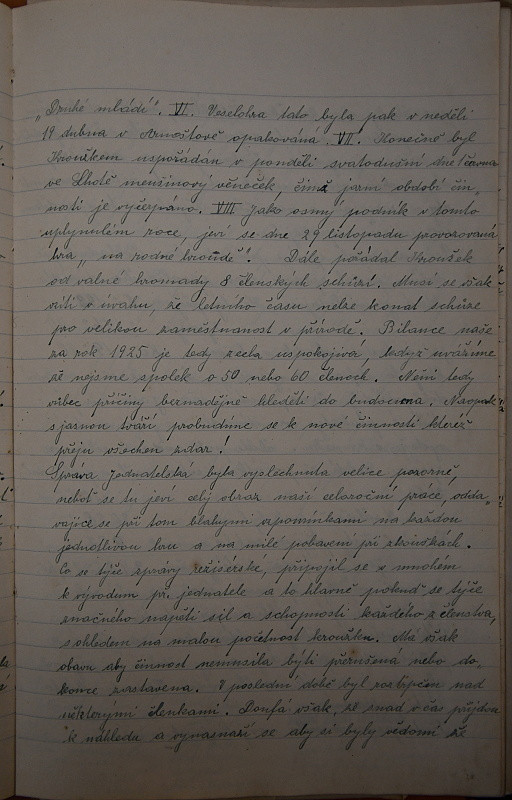 „Druhé mládí". VI. Veselohra tato byla pak v neděli
19 dubna v Arnoštově opakována. VII. Konečně byl
Kroužkem uspořádán v pondělí svatodušní dne 1 června
ve Lhotě menšinový věneček, čímž jarní období čin„
nosti je vyčerpáno. VIII Jako osmý podnik v tomto
uplynulém roce, jeví se dne 29 listopadu provozovaná
hra „na rodné hroudě". Dále pořádal Kroužek
od valné hromady 8 členských schůzí. Musí se však
vzíti v úvahu, že letního času nelze konat schůze
pro velikou zaměstnanost v přírodě. Bilance naše
za rok 1925 je tedy zcela uspokojivá, když uvážíme
že nejsme spolek o 50 nebo 60 členech. Není tedy
vůbec příčiny beznadějně hleděti do budoucna. Naopak
s jasnou tváří probudíme se k nové činnosti kteréž
přeju všechen zdar!
Správa jednatelská byla vyslechnuta velice pozorně,
neboť se tu jeví celý obraz naší celoroční práce, odda„
vajíce se při tom blahými vzpomínkami na každou
jednotlivou hru a na milé pobavení při zkouškách.
Co se týče zprávy režisérské, připojil se v mnohém
k vývodům př. jednatele a to hlavně pokud se týče
značného napětí sil a schopností každého z členstva,
s ohledem na malou početnost kroužku. Má však
obavu aby činnost nemusila býti přerušená nebo do„
konce zastavena. V poslední době byl roztrpčen nad
některými členkami. Doufá však, že snad v čas přijdou
k náhledu a vynasnaží se aby si byly vědomi že